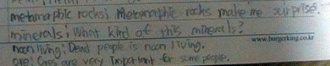 metamorphic rocks! Metamorphic rocks make me surprise.
minerals: What kind of this minerals?
www.burgerking.co.kr
noon living: Dead people is noon living.
ore: Ores are very important for some people.